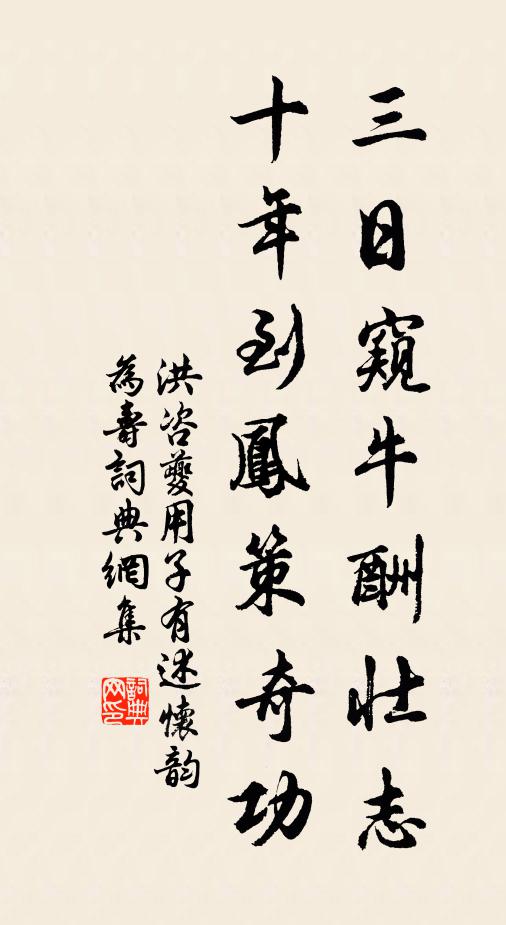 三日窺牛酬壯志
十年到鳳策奇功
洪咨夔用子有述懷韵
為壽詞典網集
詞典
网印